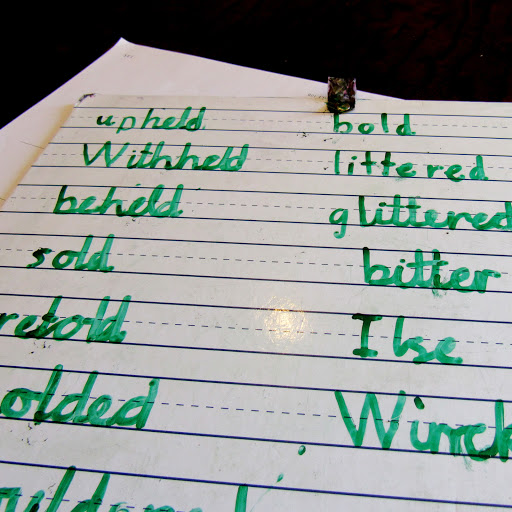 upheld bold
Withheld littered
beheld glittered
sold bitter
retold Ilse
olded